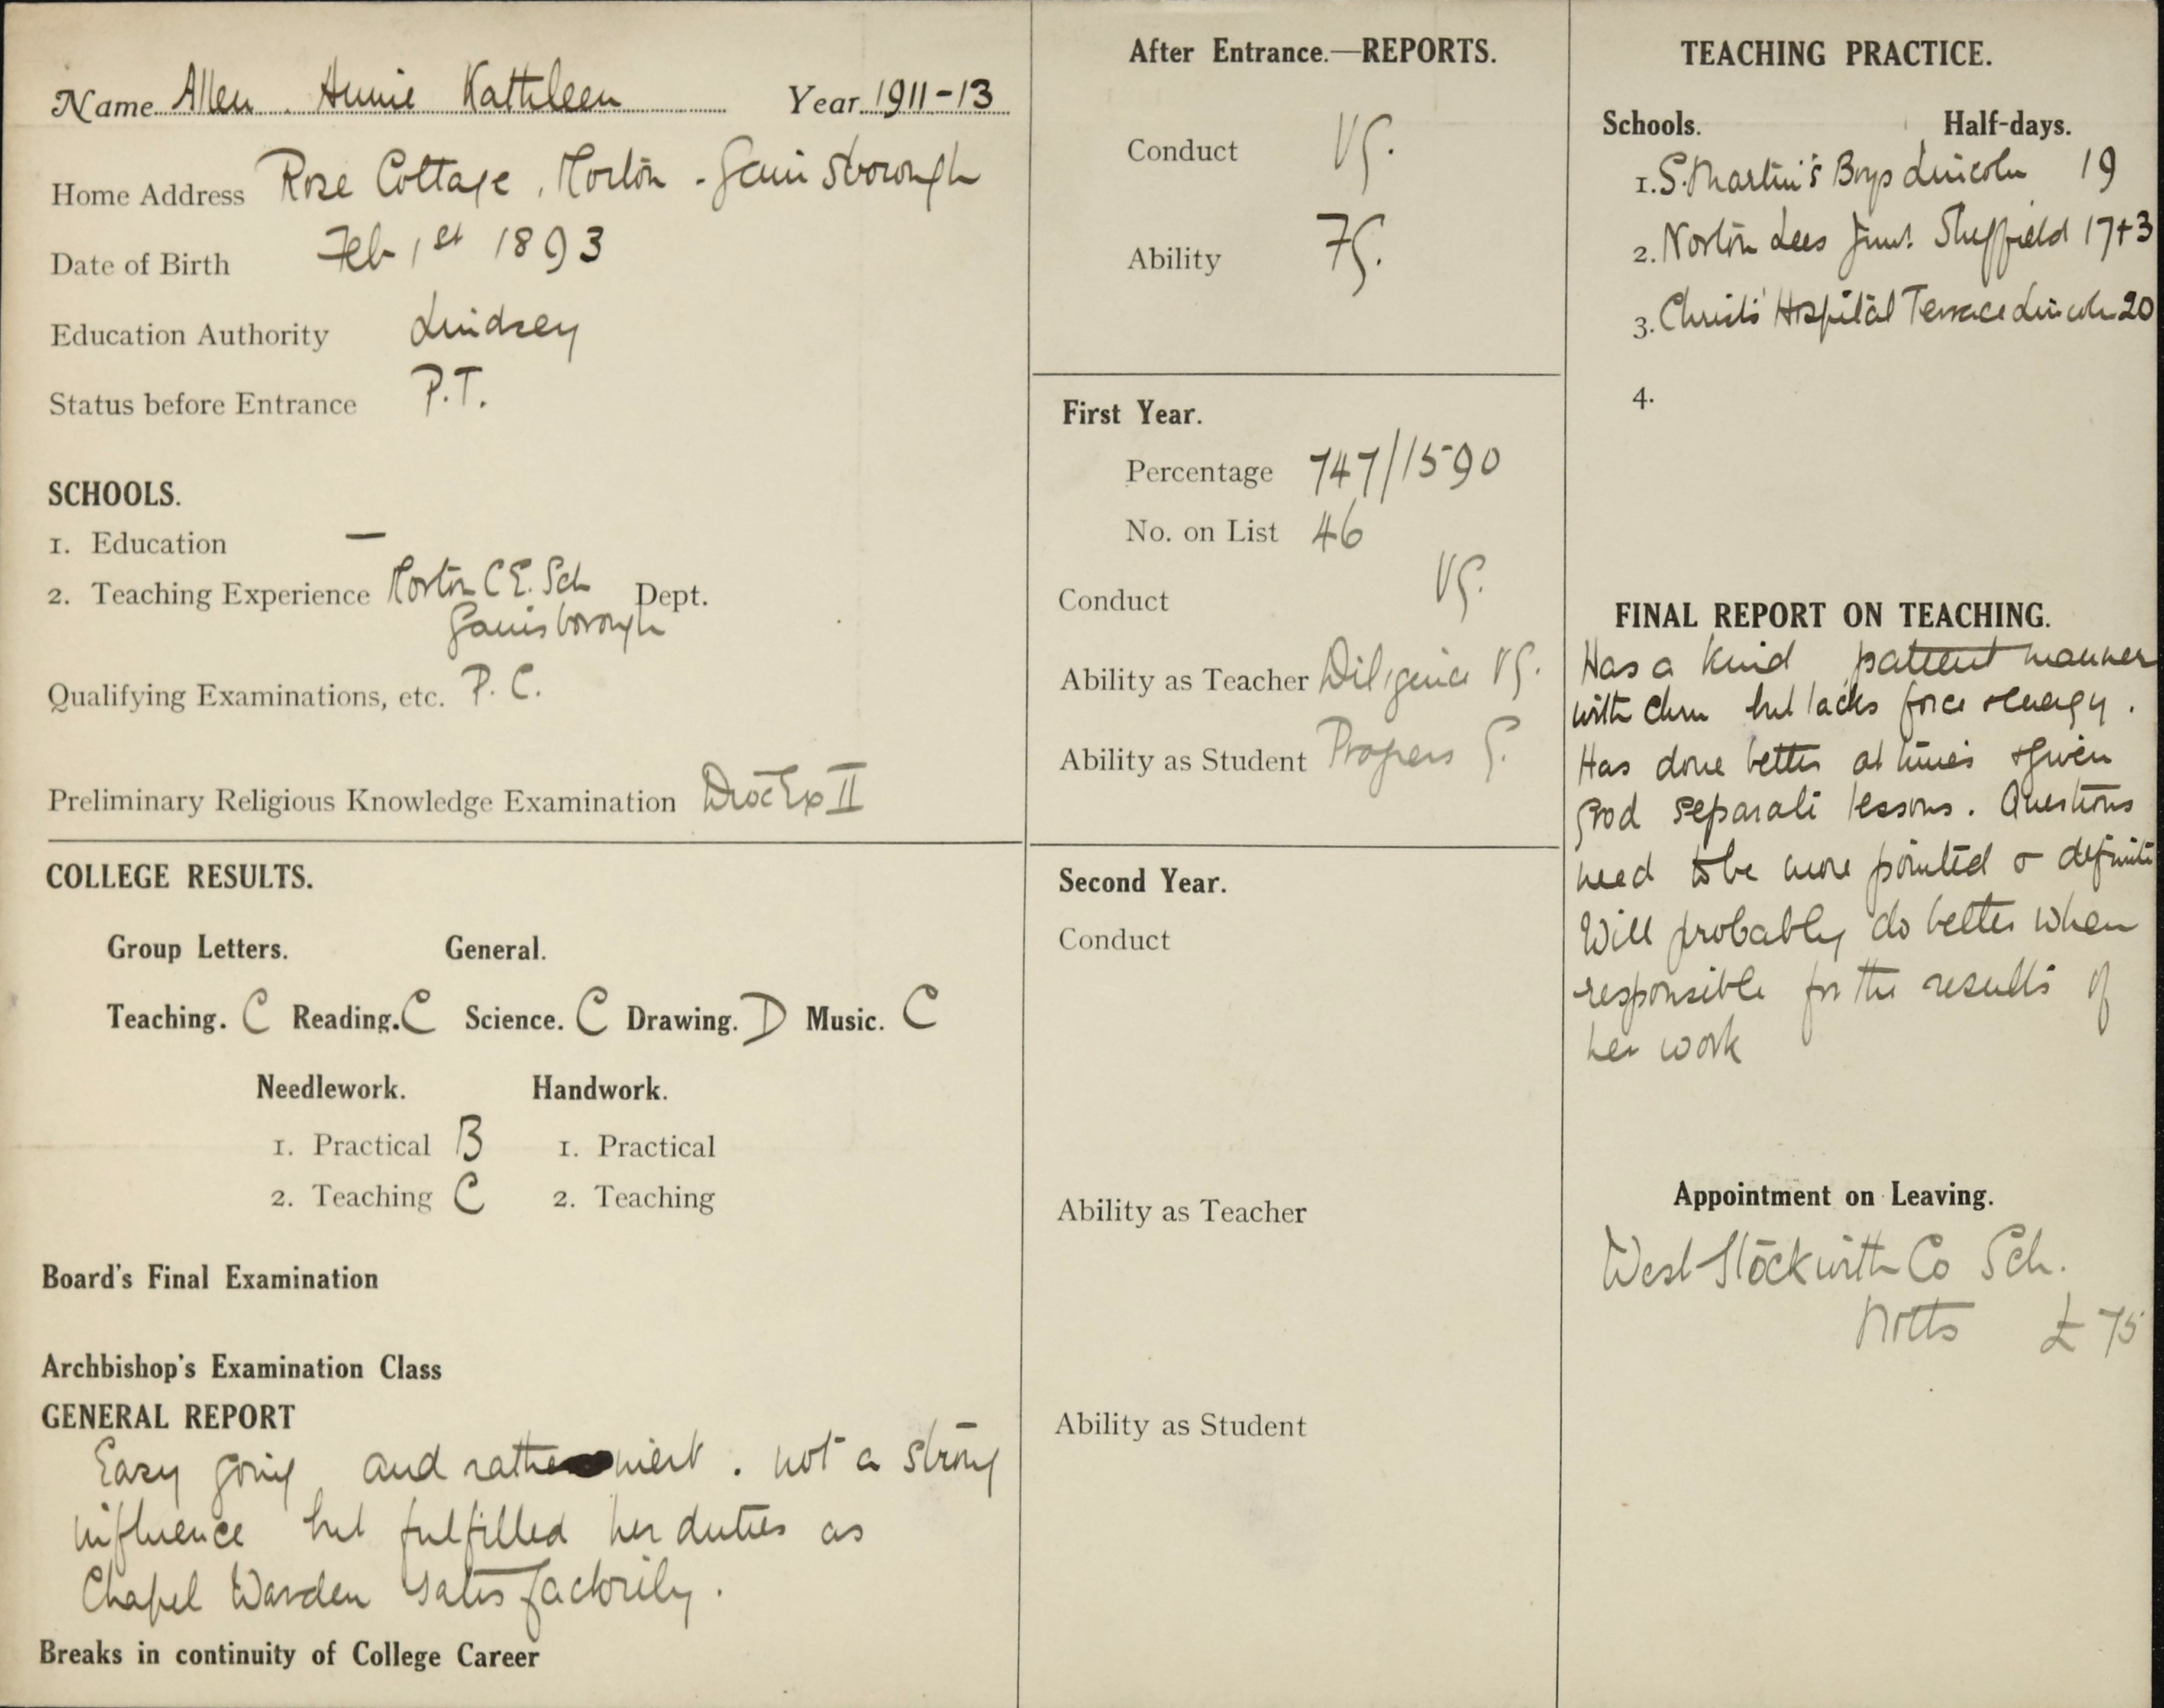 Name Allen. Annie Kathleen Year 1911-13
Home Address Rose Cottage, Morton - Gainsborough
Date of Birth Feb 1st 1893
Education Authority Lindsey
Status before Entrance P.T.
SCHOOLS.
1. Education —
2. Teaching Experience Morton C.E. Sch Dept.
Gainsborough
Qualifying Examinations, etc. P.C.
Preliminary Religious Knowledge Examination Dioc Ex II
COLLEGE RESULTS.
Group Letters. General.
Teaching. C Reading. C Science. C Drawing. D Music. C
Needlework. Handwork.
1. Practical B 1. Practical
2. Teaching C 2. Teaching
Board's Final Examination
Archbishop's Examination Class
GENERAL REPORT
Easy going and rather inert. not a strong
influence but fulfilled her duties as
Chapel Warden satisfactorily.
Breaks in continuity of College Career
After Entrance.—REPORTS.
Conduct VG.
Ability FG.
First Year.
Percentage 747/1590
No. on List 46
Conduct VG.
Ability as Teacher Diligence VG.
Ability as Student Progress G.
Second Year.
Conduct
Ability as Teacher
Ability as Student
TEACHING PRACTICE.
Schools. Half-days.
1. S. Martin's Boys Lincoln 19
2. Norton Lees Sheffield 17+3
3. Christ's Hospital Terrace Lincoln 20
4.
FINAL REPORT ON TEACHING.
Has a kind patient manner
with chn but lacks force & energy.
Has done better at times & given
good separate lessons. Questions
need to be more pointed & definite
Will probably do better when
responsible for the results of
her work
Appointment on Leaving.
West Stockwith Co Sch.
Notts £75